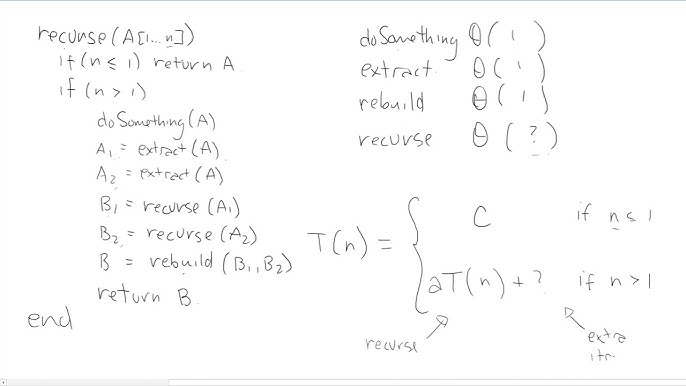 recurse(A[1...n])
if(n ≤ 1) return A
if(n > 1)
doSomething(A)
A₁ = extract(A)
A₂ = extract(A)
B₁ = recurse(A₁)
B₂ = recurse(A₂)
B = rebuild(B₁,B₂)
return B
end
doSomething Θ(1)
extract Θ(1)
rebuild Θ(1)
recurse Θ(?)
T(n) = { C if n ≤ 1
2T(n) + ? if n > 1
recurse
extra